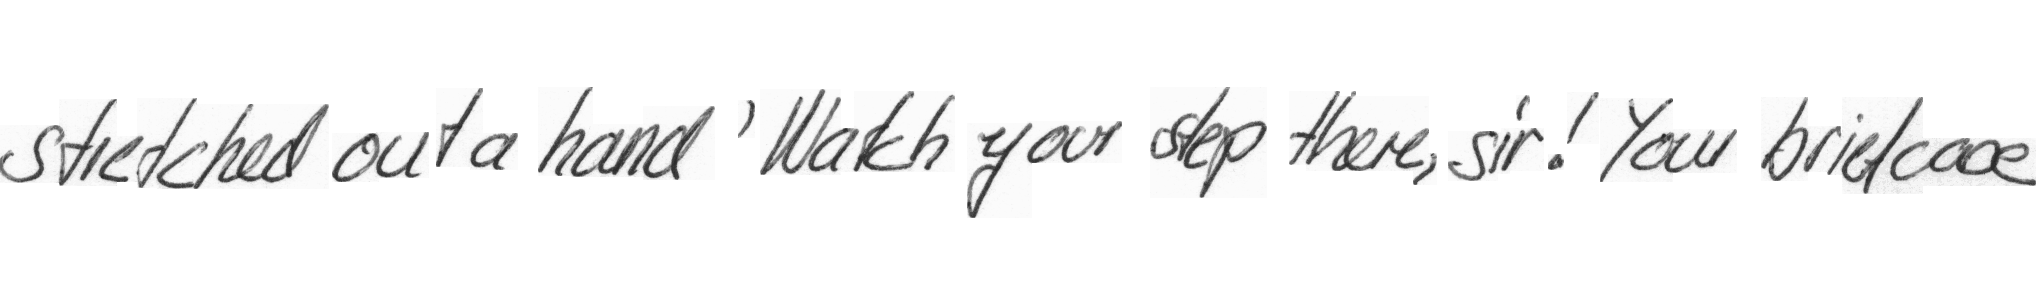 stretched out a hand 'Watch your step there, sir! Your briefcase